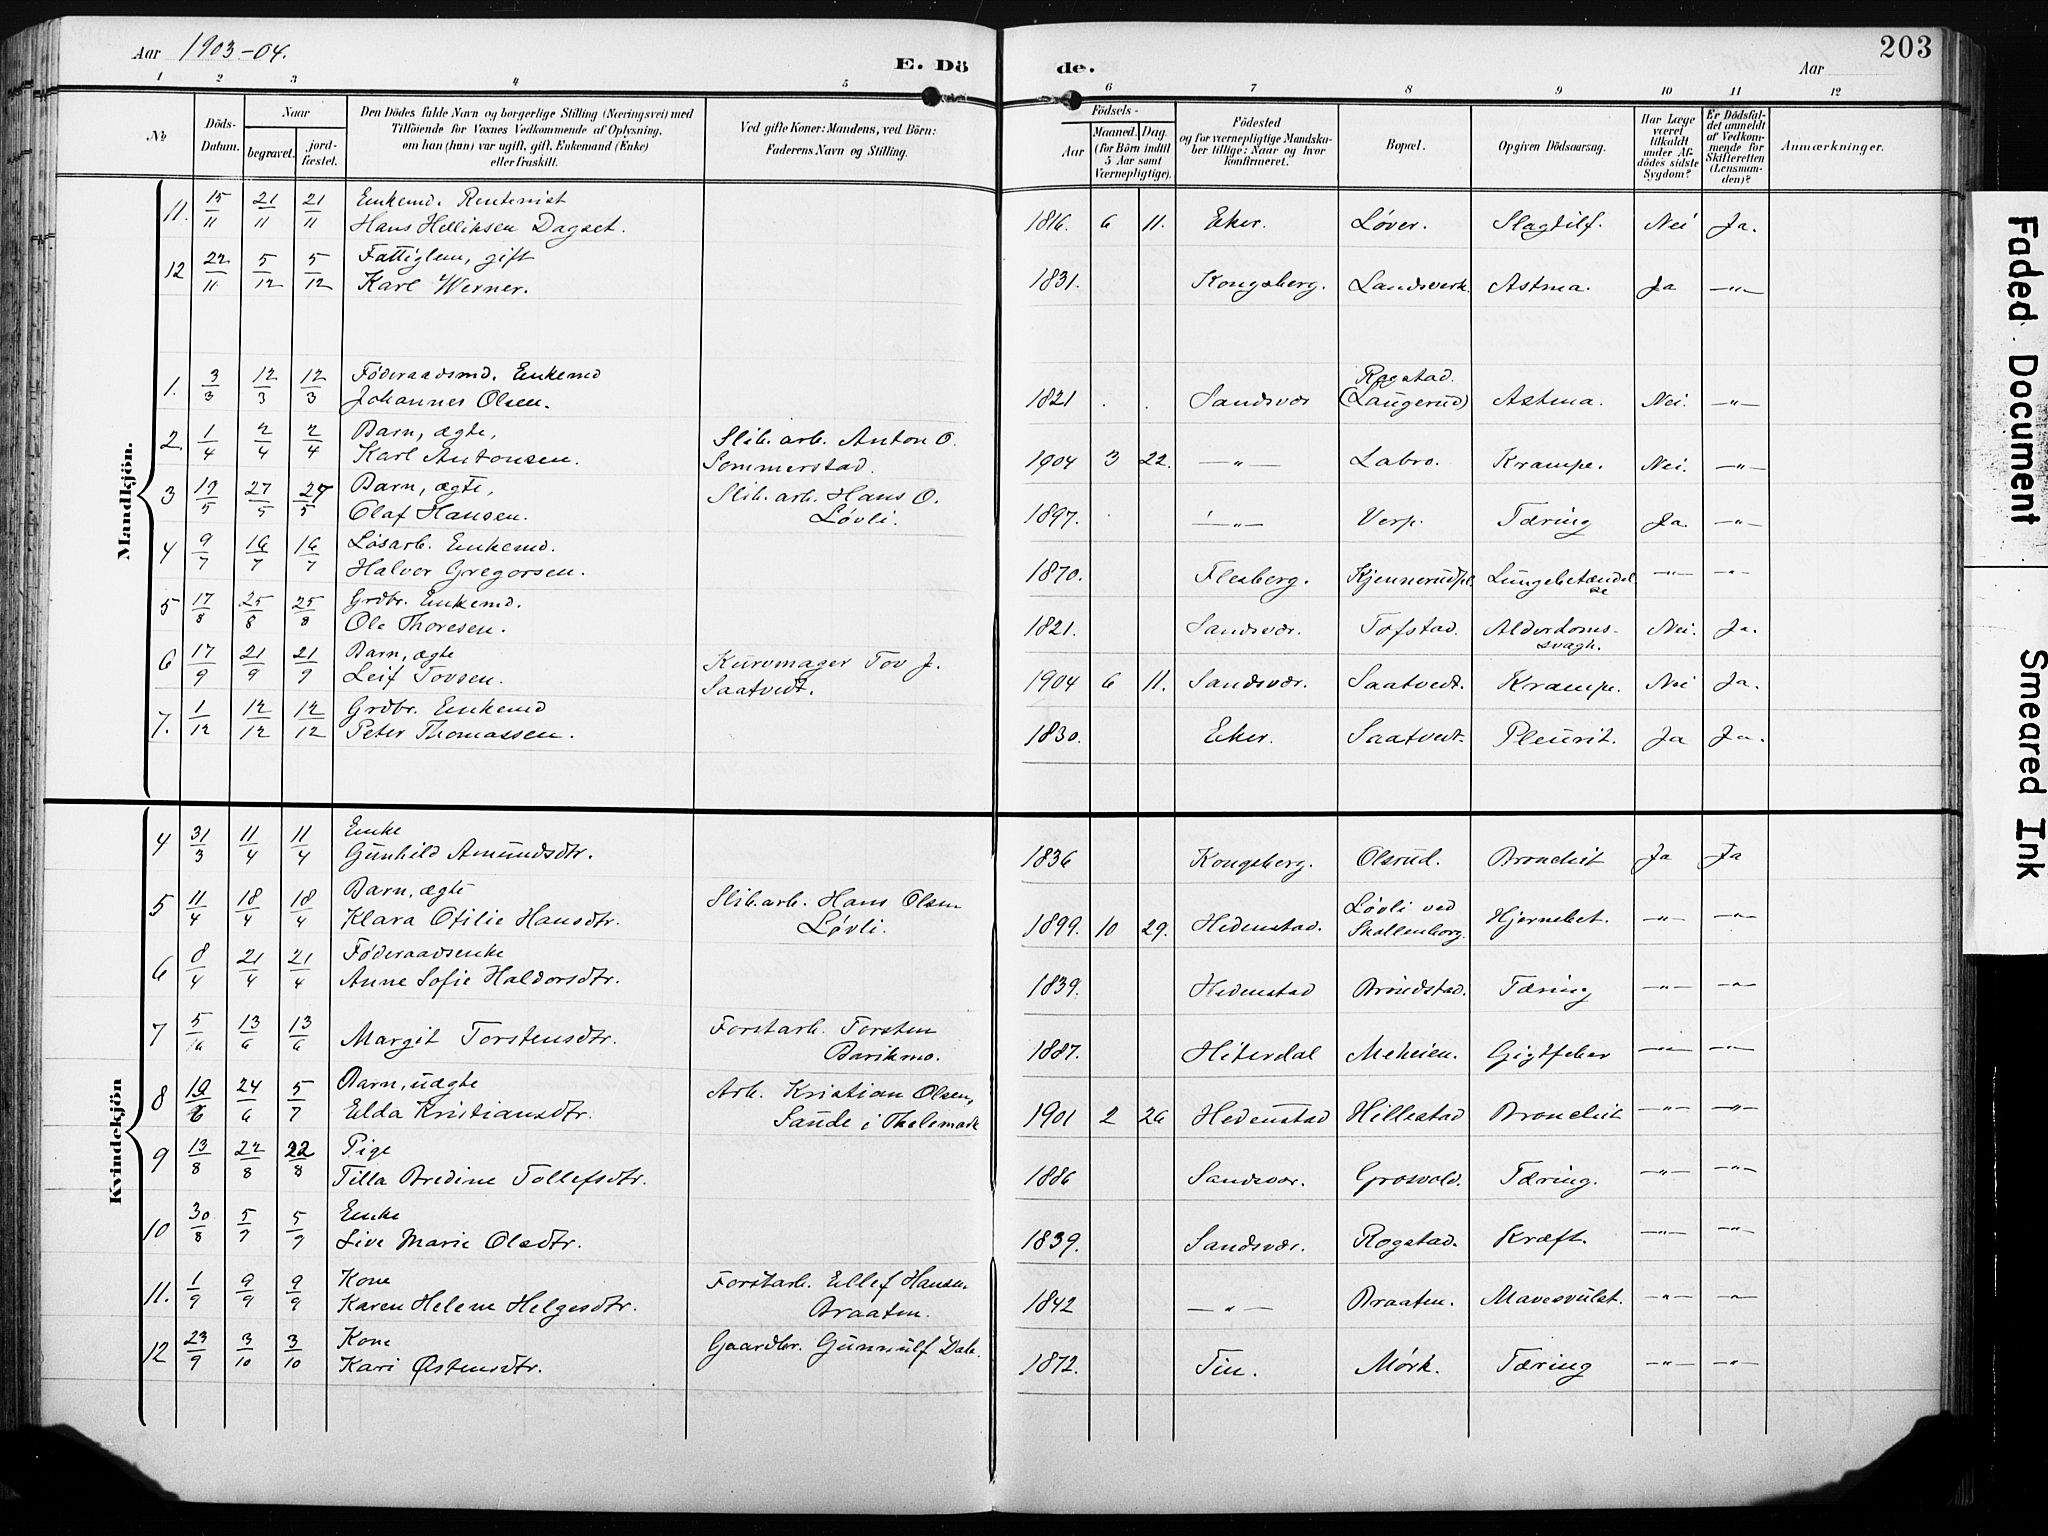 Aar 1903-04.
E. Dö de.
Aar
203
1 2 3 4 5 6 7 8 9 10 11 12
No
Döds-
Datum.
Naar
begravet.
jord-
fæstet.
Den Dödes fulde Navn og borgerlige Stilling (Næringsvei) med
Tilföiende for Voxnes Vedkommende af Oplysning,
om han (hun) var ugift, gift, Enkemand (Enke)
eller fraskilt.
Ved gifte Koner: Mandens, ved Börn:
Faderens Navn og Stilling.
Födsels-
Aar
Maaned. Dag.
(for Börn indtil
5 Aar samt
Værnepligtige).
Födested
og for værnepligtige Mandska-
ber tillige: Naar og hvor
konfirmeret.
Bopæl.
Opgiven Dödsaarsag.
Har Læge
været
tilkaldt
under Af-
dödes sidste
Sygdom?
Er Dödsfal-
det anmeldt
af Vedkom-
mende for
Skifteretten
(Lensman-
den)?
Anmærkninger.
Mandkjön.
11. 15/11 21/11 21/11 Enkemd. Rentenist
Hans Helliksen Dagset. 1816. 6 11. Eker. Løver. Slagtilf. Nei Ja.
12 22/11 5/12 5/12 Fattiglem, gift
Karl Werner. 1831. Kongsberg. Landsverk. Astma. Ja —"—
1. 3/3 12/3 12/3 Føderaadsmd. Enkemd
Johannes Olsen. 1821 . . Sandsvær Rogstad. (Laugerud) Astma. Nei. —"—
2. 1/4 2/4 2/4 Barn, ægte, Slib. arb. Anton O.
Karl Antonsen. Sommerstad. 1904 3 22. —"— Labro. Krampe. Nei. —"—
3 19/5 27/5 27/5 Barn, ægte, Slib. arb. Hans O.
Olaf Hansen. Løvli. 1897. —"— Verp. Tæring Ja. —"—
4 9/7 16/7 16/7 Løsarb. Enkemd.
Halvor Gregorsen. 1870. Flesberg. Kjennerudpl. Lungebetændelse —"— —"—
5 17/8 25/8 25/8 Grdbr. Enkemd.
Ole Thoresen. 1821. Sandsvær. Tofstad. Alderdoms-svagh. Nei. Ja.
6 17/9 21/9 21/9 Barn, ægte Kurvmager Tov J.
Leif Tovsen. Saatvedt. 1904 6 11. Sandsvær. Saatvedt. Krampe. Nei Ja.
7. 1/12 12/12 12/12 Grdbr. Enkemd
Peter Thomassen. 1830. Eker. Saatvedt. Pleurit. Ja Ja.
Kvindekjön
4 31/3 11/4 11/4 Enke
Gunhild Amundsdtr. 1836 Kongsberg. Olsrud. Bronchit Ja Ja
5 11/4 18/4 18/4 Barn, ægte Slib. arb. Hans Olsen
Klara Otilie Hansdtr. Løvli. 1899. 10 29. Hedenstad. Løvli ved Skollenborg. Hjernebet. —"— —"—
6 8/4 21/4 21/4 Føderaadsenke
Anne Sofie Haldorsdtr. 1839. Hedenstad Brundstad. Tæring —"— —"—
7 5/6 13/6 13/6 Forstarb. Torsten
Margit Torstensdtr. Barikmo. 1887. Hiterdal Meheien. Gigtfeber —"— —"—
8 19/6 24/6 5/7 Barn, uægte Arb. Kristian Olsen,
Elda Kristiansdtr. Saude i Thelemark 1901 2 26 Hedenstad Hillestad Bronchit —"— —"—
9 13/8 22/8 22/8 Pige
Tilla Bredine Tollefsdtr. 1886 Sandsvær. Grosvold. Tæring. —"— —"—
10 30/8 5/9 5/9 Enke
Live Marie Olsdtr. 1839. Sandsvær. Rogstad. Kræft. —"— —"—
11. 1/9 9/9 9/9 Kone Forstarb. Ellef Hansen
Karen Helene Helgesdtr. Braaten. 1842 —"— Braaten. Mavesvulst. —"— —"—
12 23/9 3/10 3/10 Kone Gaardbr. Gunnulf Dale.
Kari Østensdtr. 1872. Tin. Mørk. Tæring —"— —"—
Faded Document
Smeared Ink